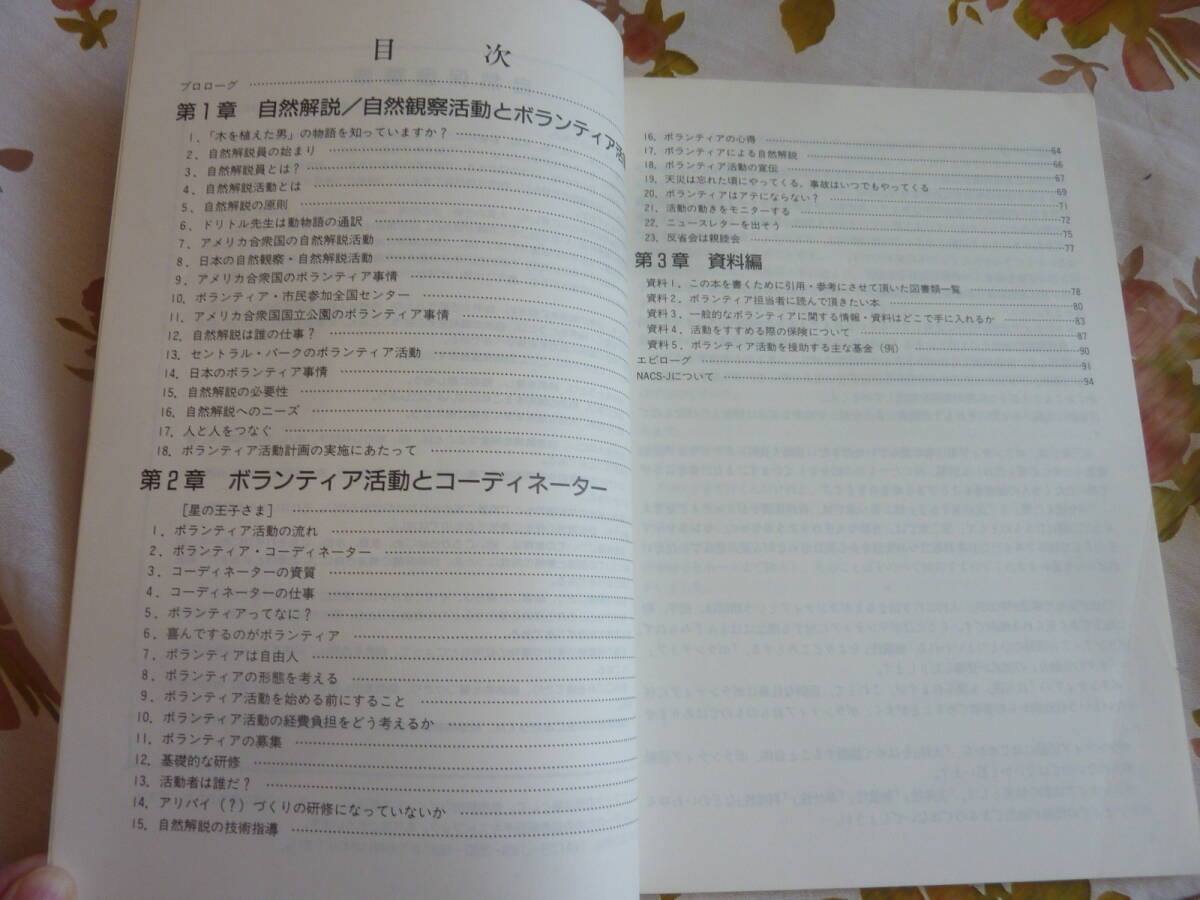 目 次
プロローグ
第1章 自然解説／自然観察活動とボランティア活
1．「木を植えた男」の物語を知っていますか？
2．自然解説員の始まり
3．自然解説員とは？
4．自然解説活動とは
5．自然解説の原則
6．ドリトル先生は動物語の通訳
7．アメリカ合衆国の自然解説活動
8．日本の自然観察・自然解説活動
9．アメリカ合衆国のボランティア事情
10．ボランティア・市民参加全国センター
11．アメリカ合衆国国立公園のボランティア事情
12．自然解説は誰の仕事？
13．セントラル・パークのボランティア活動
14．日本のボランティア事情
15．自然解説の必要性
16．自然解説へのニーズ
17．人と人をつなぐ
18．ボランティア活動計画の実施にあたって
第2章 ボランティア活動とコーディネーター
［星の王子さま］
1．ボランティア活動の流れ
2．ボランティア・コーディネーター
3．コーディネーターの資質
4．コーディネーターの仕事
5．ボランティアってなに？
6．喜んでするのがボランティア
7．ボランティアは自由人
8．ボランティアの形態を考える
9．ボランティア活動を始める前にすること
10．ボランティア活動の経費負担をどう考えるか
11．ボランティアの募集
12．基礎的な研修
13．活動者は誰だ？
14．アリバイ（？）づくりの研修になっていないか
15．自然解説の技術指導
16．ボランティアの心得 64
17．ボランティアによる自然解説 66
18．ボランティア活動の宣伝 67
19．天災は忘れた頃にやってくる，事故はいつでもやってくる 69
20．ボランティアはアテにならない？ 71
21．活動の動きをモニターする 72
22．ニュースレターを出そう 75
23．反省会は親睦会 77
第3章 資料編
資料1．この本を書くために引用・参考にさせて頂いた図書類一覧 78
資料2．ボランティア担当者に読んで頂きたい本 80
資料3．一般的なボランティアに関する情報・資料はどこで手に入れるか 83
資料4．活動をすすめる際の保険について 87
資料5．ボランティア活動を援助する主な基金（例） 90
エピローグ 91
NACS-Jについて 94